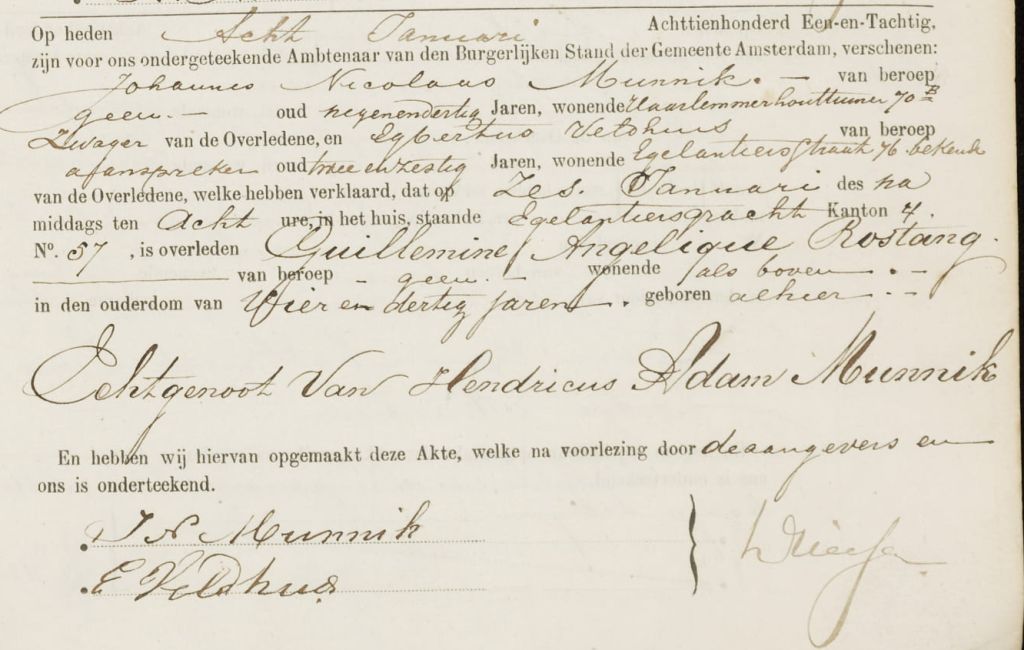 Op heden Acht Januari Achttienhonderd Een-en-Tachtig,
zijn voor ons ondergeteekende Ambtenaar van den Burgerlijken Stand der Gemeente Amsterdam, verschenen:
Johannes Nicolaas Munnik. – van beroep
geen. – oud negenendertig Jaren, wonende Haarlemmerhouttuinen 70 B
Zwager van de Overledene, en Egbertus Veldhuis van beroep
aanspreker oud twee en zestig Jaren, wonende Egelantiersstraat 76 bekende
van de Overledene, welke hebben verklaard, dat op Zes. Januari des na
middags ten Acht ure, in het huis, staande Egelantiersgracht Kanton 4.
No. 57 , is overleden Guillemine Angelique Rostang.
van beroep – geen. – wonende als boven. –
in den ouderdom van Vier en dertig jaren. geboren alhier. –
Echtgenoot Van Hendricus Adam Munnik
En hebben wij hiervan opgemaakt deze Akte, welke na voorlezing door de aangevers en
ons is onderteekend.
J N Munnik
E Veldhuis